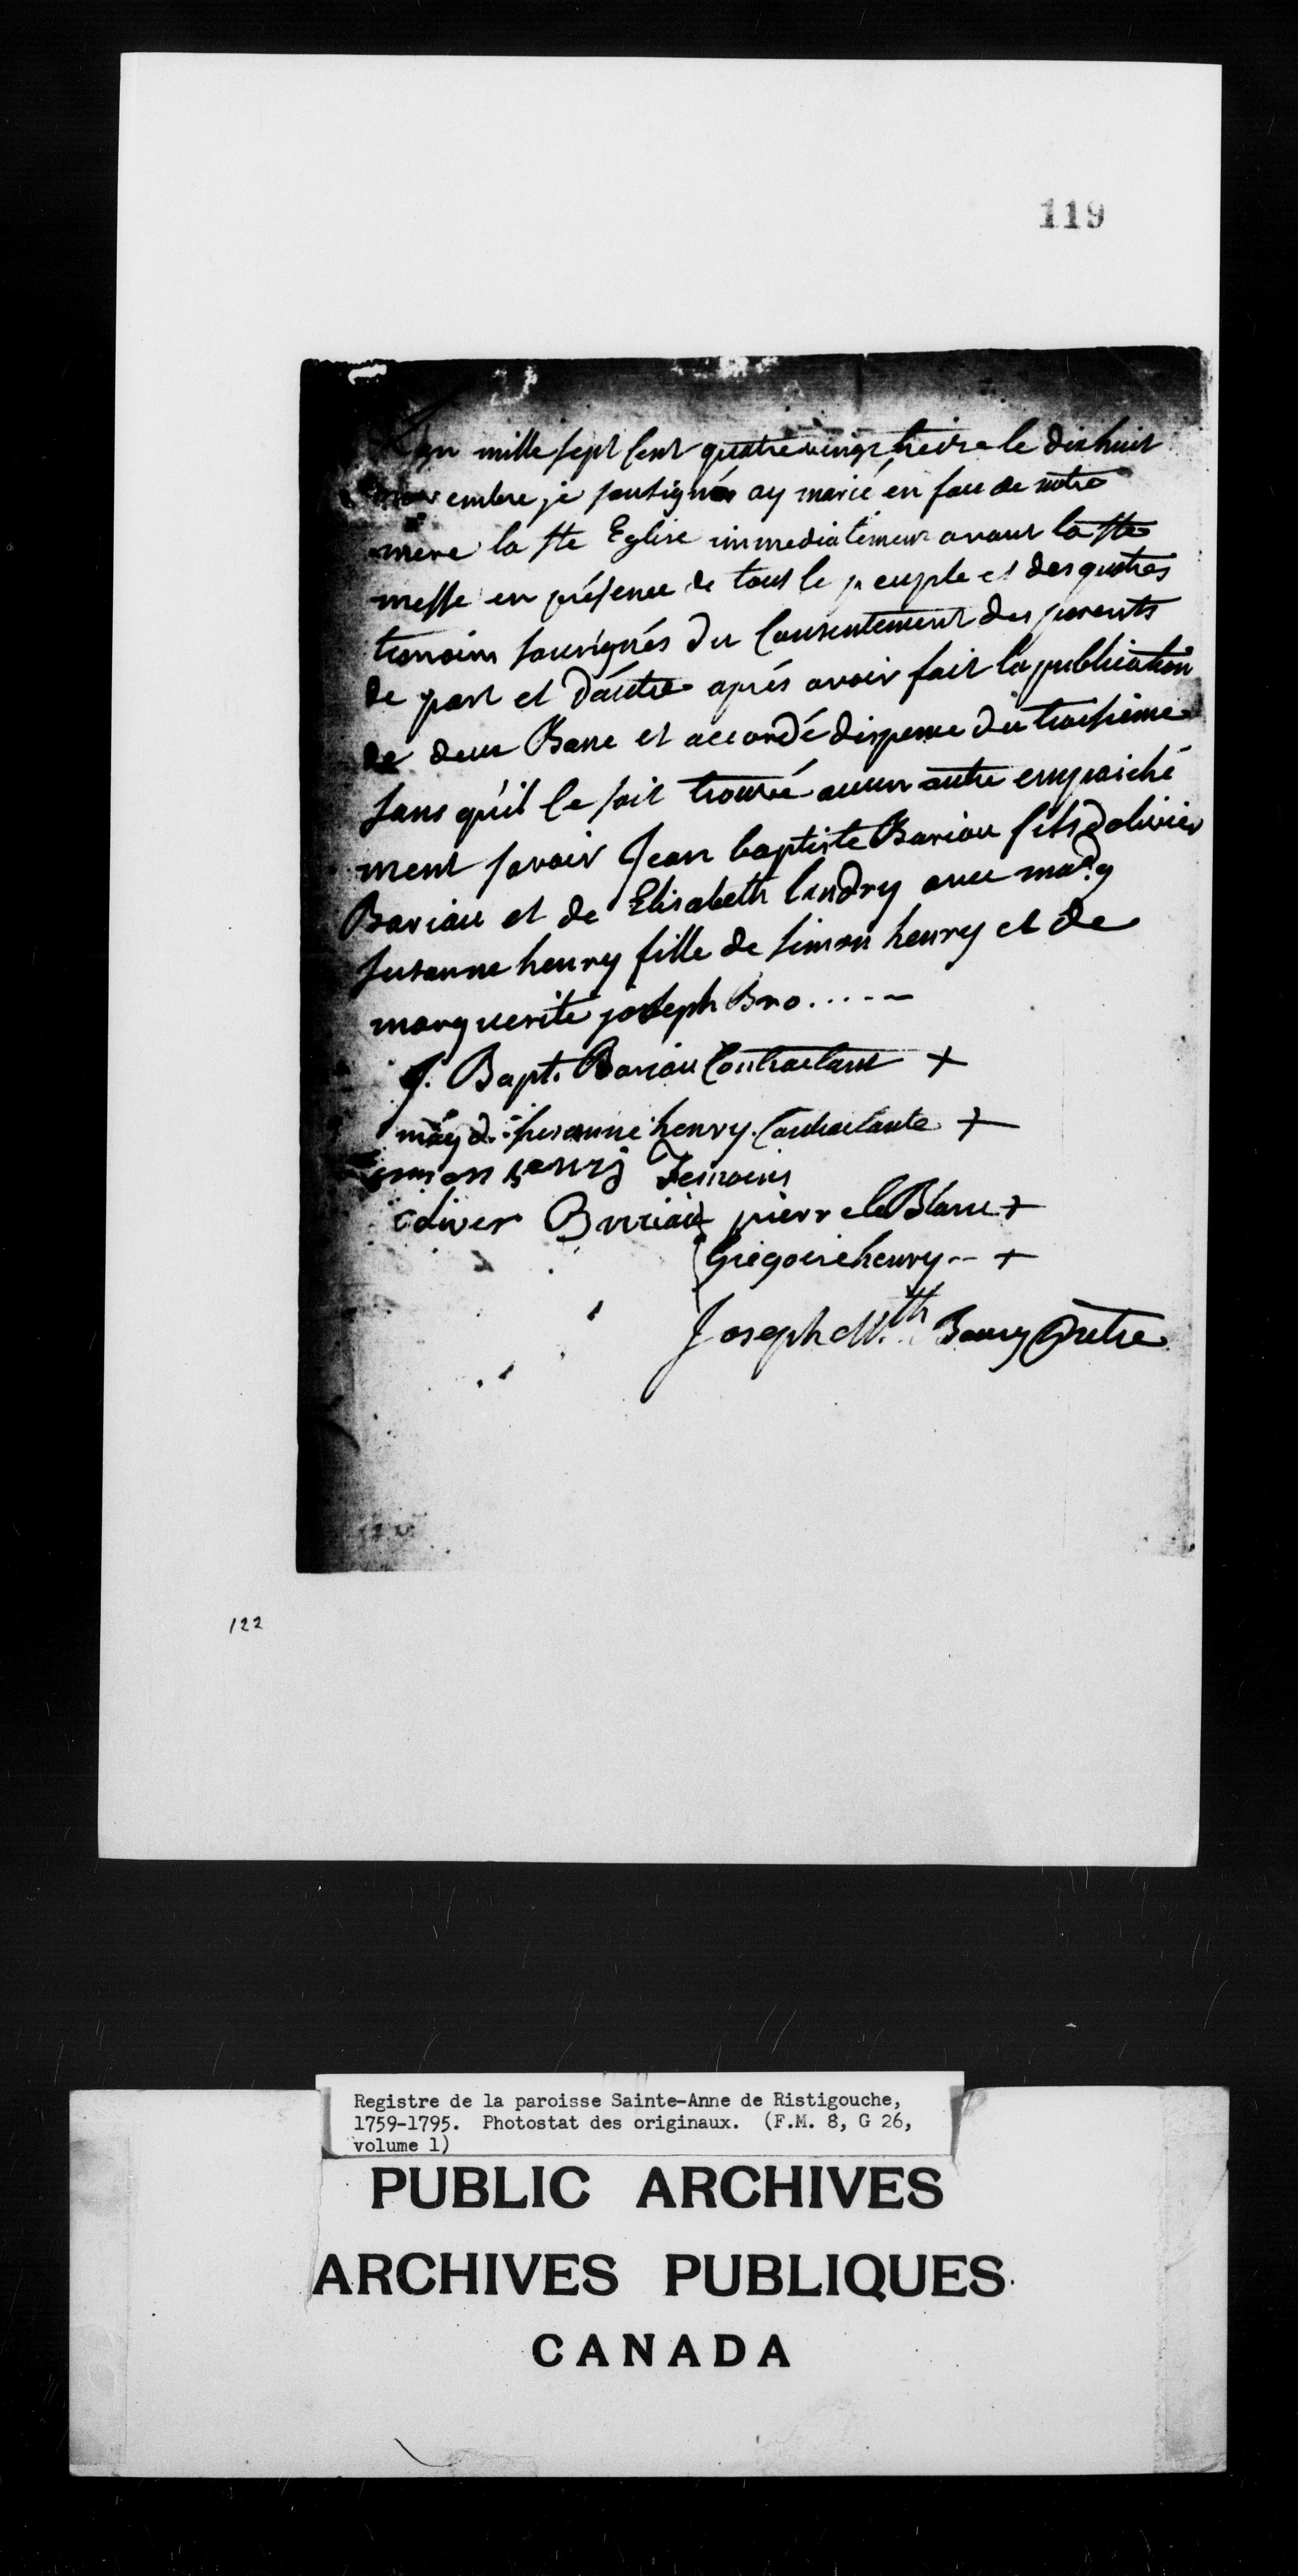 119
L'an mille sept cent quatrevingt treize le dixhuit
novembre je sousigné ay marié en face de notre
mere la Ste Eglise immediatement avant la Ste
messe en présence de tout le peuple et des quatres
temoins sousignés du Consentement des parents
de part et d'autre aprés avoir fait la publication
de deux Banc et accordé dispense du troisieme
sans qu'il se soit trouvé aucun autre empaiché
ment savoir Jean baptiste Bariau fils d'olivier
Bariau et de Elisabeth landry avec
susanne henry fille de simon henry et de
marguerite joseph Bro.....-
J. Bapt. Bariau Contractant +
susanne henry. Contractante +
simon henry Temoins
oliver Buriau pierre le Blanc +
Gregoire henry -- +
Joseph Mth. Bourg Prêtre
122
Registre de la paroisse Sainte-Anne de Ristigouche,
1759-1795. Photostat des originaux. (F.M. 8, G 26,
volume 1)
PUBLIC ARCHIVES
ARCHIVES PUBLIQUES
CANADA